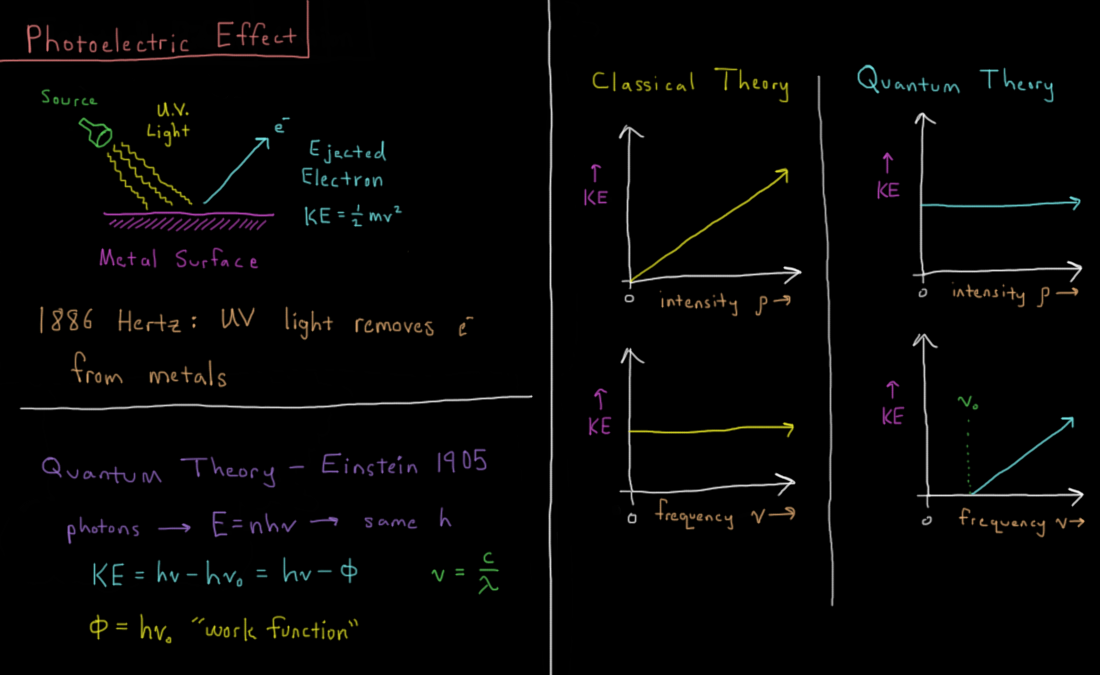 Photoelectric Effect
Source
U.V.
Light
e⁻
Ejected
Electron
KE = ½ mv²
Metal Surface
1886 Hertz: UV light removes e⁻
from metals
Quantum Theory – Einstein 1905
photons → E = nhν → same h
KE = hν – hν₀ = hν – Φ
ν = c/λ
Φ = hν₀ "work function"
Classical Theory
↑
KE
0
intensity ρ →
↑
KE
0
frequency ν →
Quantum Theory
↑
KE
0
intensity ρ →
↑
KE
ν₀
0
frequency ν →